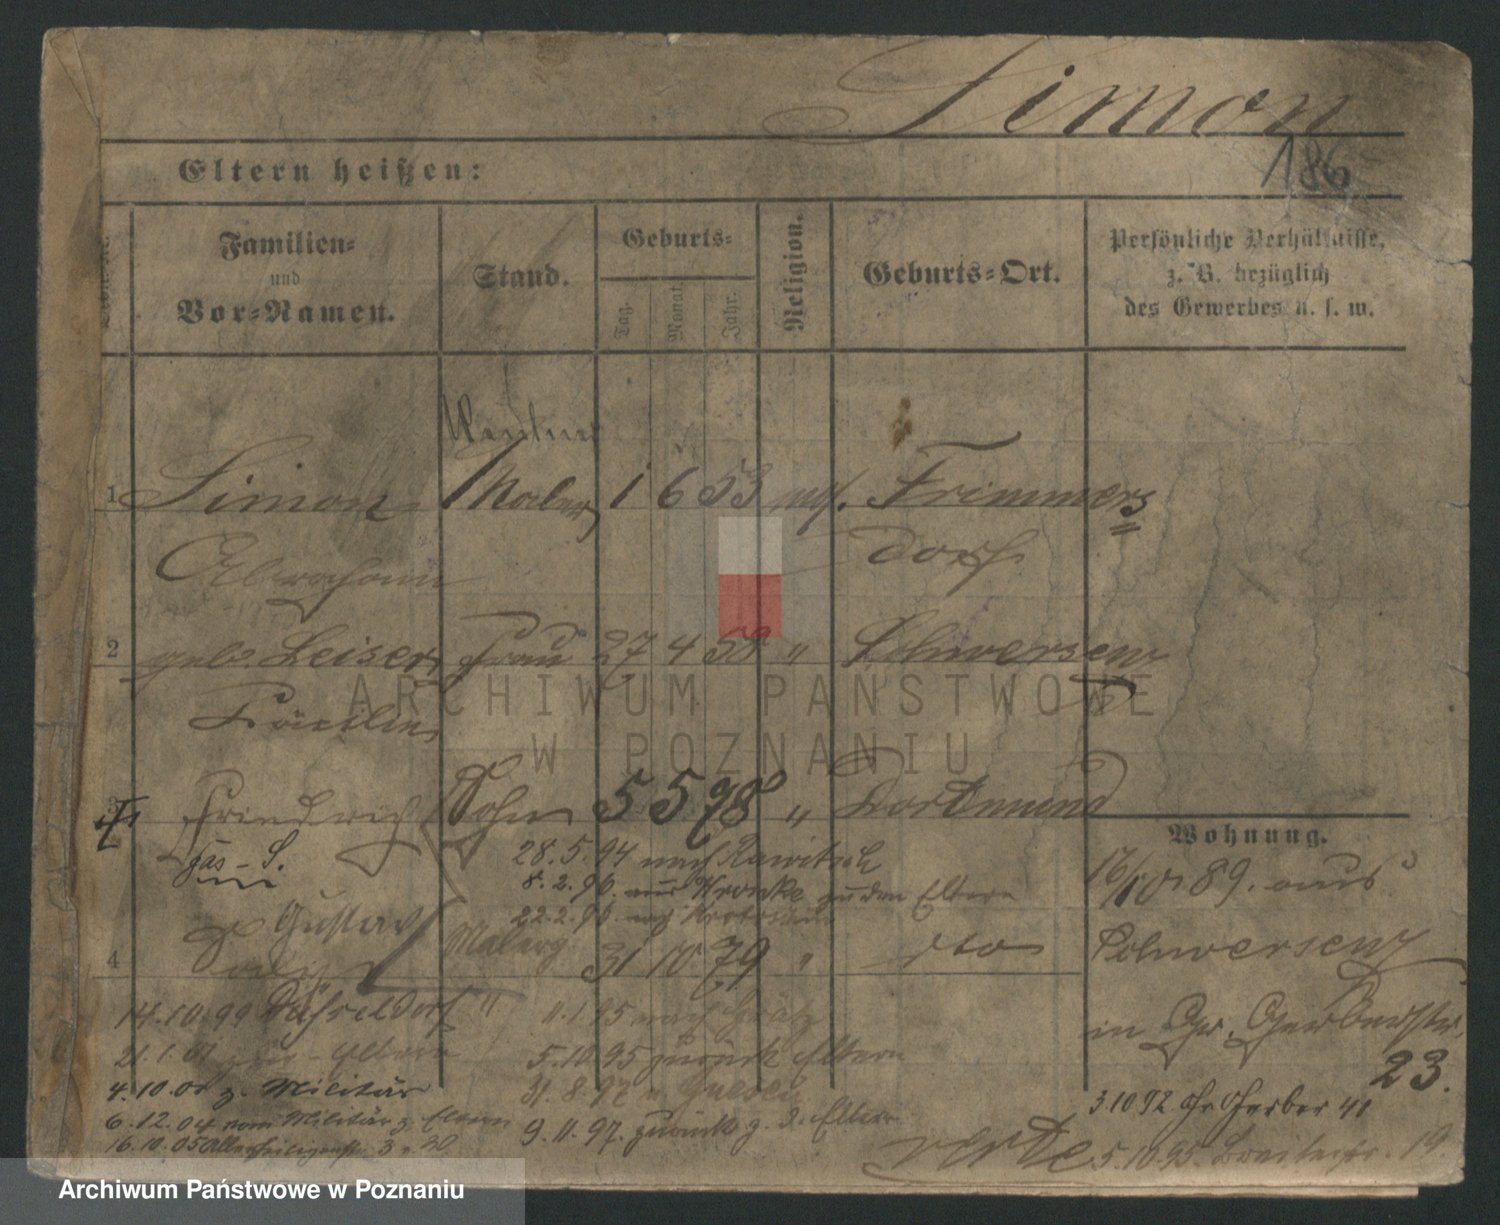 Simon
186
Eltern heißen:
Familien=
und
Vor=Namen.
Stand.
Geburts=
Tag.
Monat.
Jahr.
Religion.
Geburts=Ort.
Persönliche Verhältnisse,
z. B. bezüglich
des Gewerbes u. s. w.
1 Simon Maler 1 6 53 Frimmers
Abraham dorf
2 geb. Leiser Frau 27 4 58 " Schwersenz
Cäcilie
3 Friedrich Sohn 5 5 78 " Dortmund
Wohnung.
gas - S. 28.5.94 nach Rawitsch
8.2.96. Kronke zu den Eltern
22.2.96. nach Krotoschin
17/10 89. aus
Schwersenz
in Gr. Gerberstr.
23.
Gustav Malerg
4 31 10 79 " dto
14.10.99 Düsseldorf " 11.1.95 nach Grätz
21.1.01 Eltern 5.10.95 zurück Eltern
4.10.01 z. Militär 31.8.97
6.12.04 vom Militär z. Eltern 9.11.97. zurück z. d. Eltern
16.10.05 Allerheiligenstr. 3
3.10.92 Gr. Gerber 41
verte 5.10.95. Breitestr. 19.
ARCHIWUM PAŃSTWOWE
W POZNANIU
Archiwum Państwowe w Poznaniu